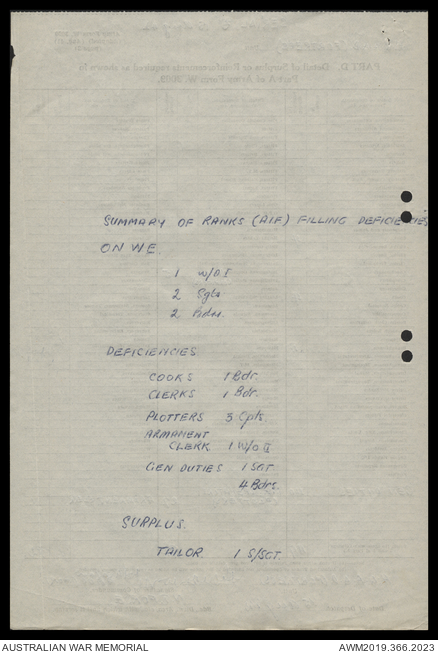 PART D. Detail of Surplus or Reinforcements required as shown in
Part A of Army Form W. 3009.
SUMMARY OF RANKS (AIF) FILLING DEFICIENCIES
ON WE.
1 W/O.I
2 Sgts
2 Bdrs.
DEFICIENCIES
COOKS 1 Bdr.
CLERKS 1 Bdr.
PLOTTERS 3 Cpls.
ARMAMENT
CLERK 1 W/O II
GEN DUTIES 1 SGT
4 Bdrs.
SURPLUS.
TAILOR. 1 S/SGT.
AUSTRALIAN WAR MEMORIAL
AWM2019.366.2023